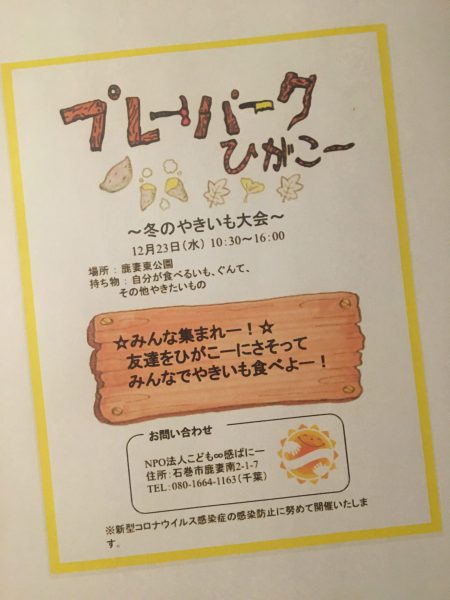 プレーパーク
ひがこー
～冬のやきいも大会～
12月23日（水） 10：30～16：00
場所 ： 鹿妻東公園
持ち物 ： 自分が食べるいも、ぐんて、
その他やきたいもの
☆みんな集まれー！☆
友達をひがこーにさそって
みんなでやきいも食べよー！
お問い合わせ
NPO法人こども∞感ぱにー
住所：石巻市鹿妻南2-1-7
TEL：080-1664-1163（千葉）
※新型コロナウイルス感染症の感染防止に努めて開催いたしま
す。